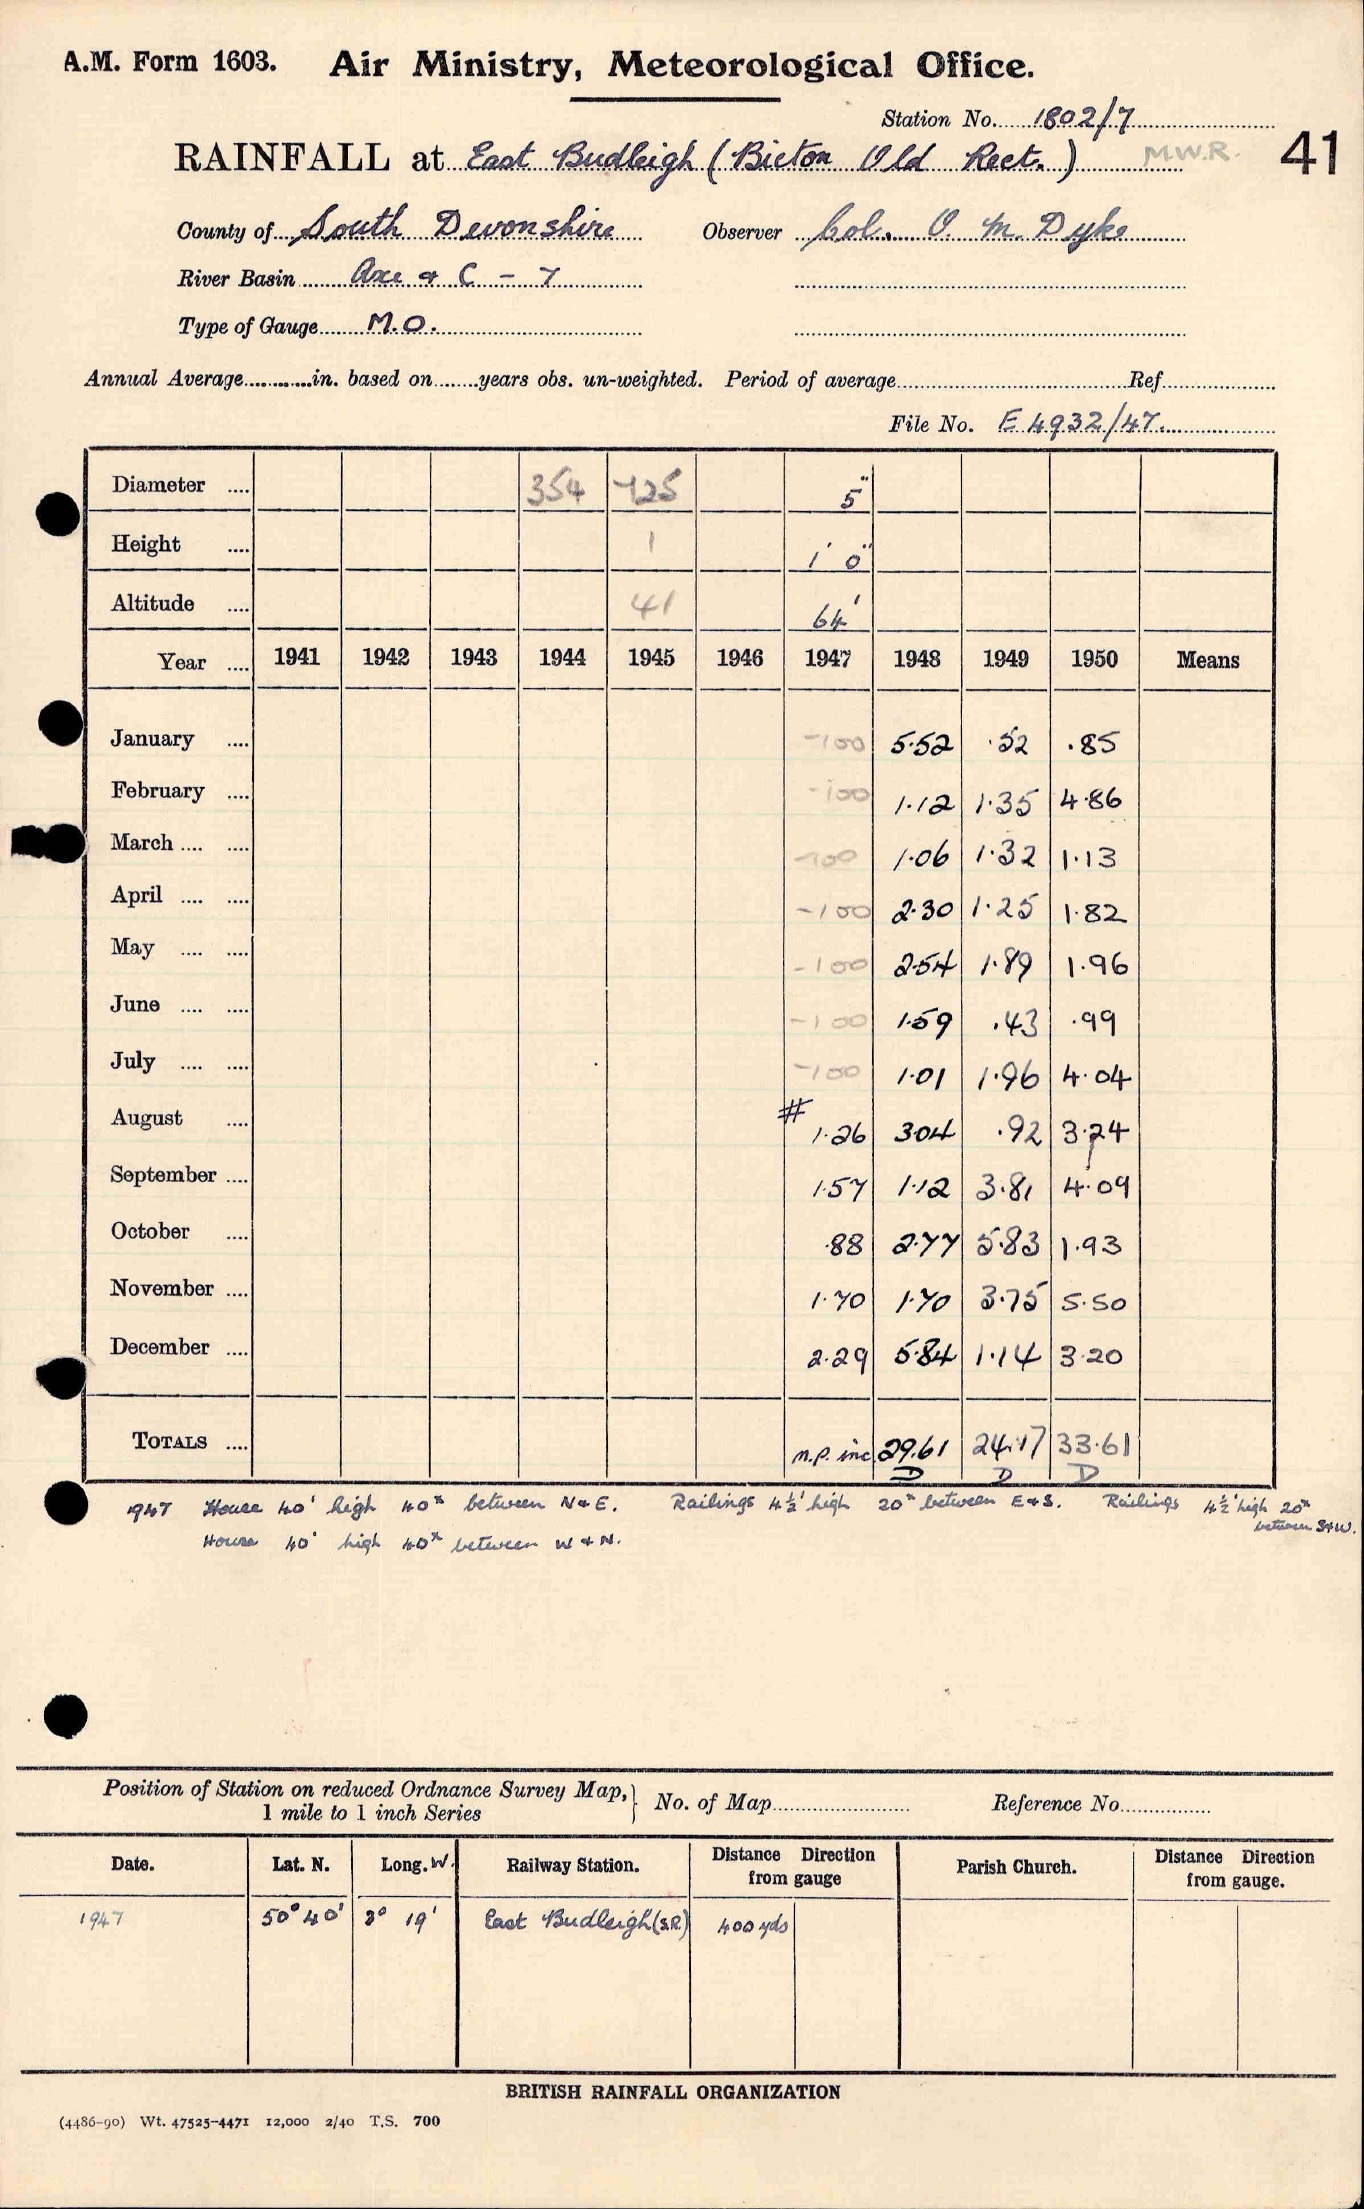 A.M. Form 1603. Air Ministry, Meteorological Office.
Station No. 1802/7
RAINFALL at East Budleigh (Bicton Old Rect.) M.W.R. 41
County of South Devonshire Observer Col. O. M. Dyke
River Basin Axe & C - 7
Type of Gauge M.O.
Annual Average............in. based on........years obs. un-weighted. Period of average........ Ref........
File No. E 4932/47
Diameter .... 354 725 5"
Height .... 1 1' 0"
Altitude .... 41 64'
Year .... 1941 1942 1943 1944 1945 1946 1947 1948 1949 1950 Means
January .... -100 5.52 .52 .85
February .... -100 1.12 1.35 4.86
March .... .... -100 1.06 1.32 1.13
April .... .... -100 2.30 1.25 1.82
May .... .... -100 2.54 1.89 1.96
June .... .... -100 1.59 .43 .99
July .... .... -100 1.01 1.96 4.04
August .... # 1.26 3.04 .92 3.24
September .... 1.57 1.12 3.81 4.09
October .... .88 2.77 5.83 1.93
November .... 1.70 1.70 3.75 5.50
December .... 2.29 5.84 1.14 3.20
TOTALS .... n.p. inc 29.61 24.17 33.61
D D D
1947 House 40' high 40x between N & E. Railings 4½' high 20x between E & S. Railings 4½' high 20x
between S & W.
House 40' high 40x between W & N.
Position of Station on reduced Ordnance Survey Map,
1 mile to 1 inch Series } No. of Map........ Reference No........
Date. Lat. N. Long. W. Railway Station. Distance Direction from gauge Parish Church. Distance Direction from gauge.
1947 50° 40' 3° 19' East Budleigh (S.R.) 400 yds
BRITISH RAINFALL ORGANIZATION
(4486-90) Wt. 47525-4471 12,000 2/40 T.S. 700